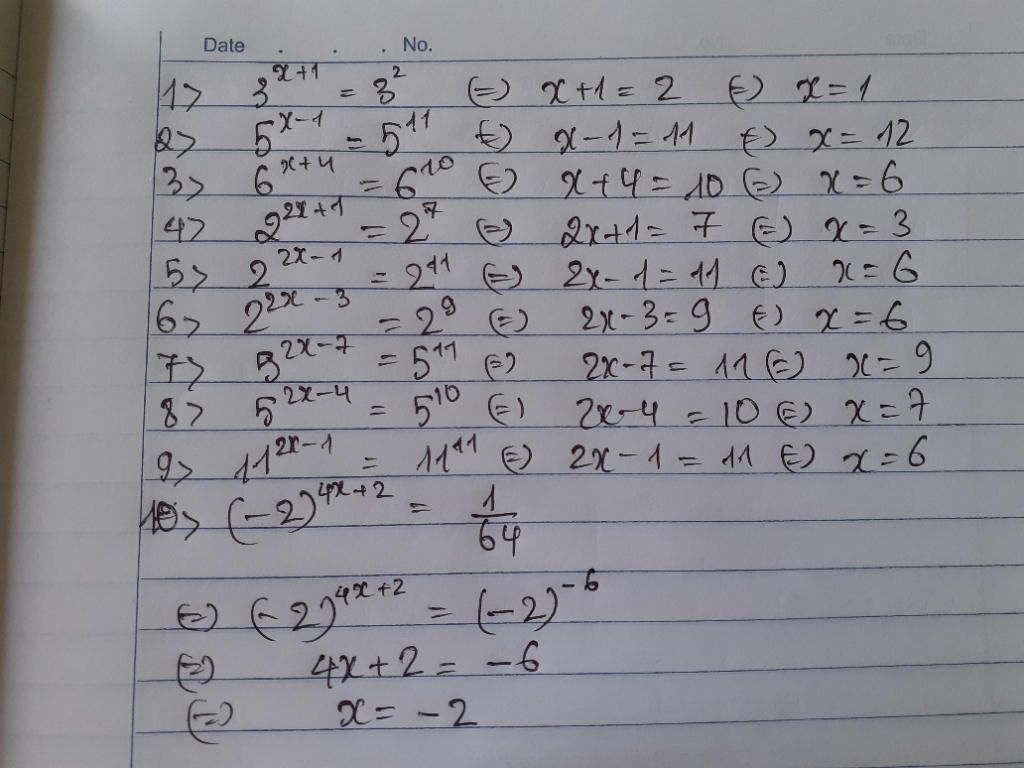 Date . . . No.
1> 3^{x+1} = 3^2 (=) x+1 = 2 (=) x=1
2> 5^{x-1} = 5^{11} (=) x-1=11 (=) x= 12
3> 6^{x+4} = 6^{10} (=) x+4= 10 (=) x=6
4> 2^{2x+1} = 2^7 (=) 2x+1= 7 (=) x= 3
5> 2^{2x-1} = 2^{11} (=) 2x-1=11 (=) x=6
6> 2^{2x-3} = 2^9 (=) 2x-3=9 (=) x=6
7> 5^{2x-7} = 5^{11} (=) 2x-7= 11 (=) x= 9
8> 5^{2x-4} = 5^{10} (=) 2x-4 = 10 (=) x=7
9> 11^{2x-1} = 11^{11} (=) 2x-1= 11 (=) x=6
10> (-2)^{4x+2} = \frac{1}{64}
(=) (-2)^{4x+2} = (-2)^{-6}
(=) 4x+2= -6
(=) x= -2